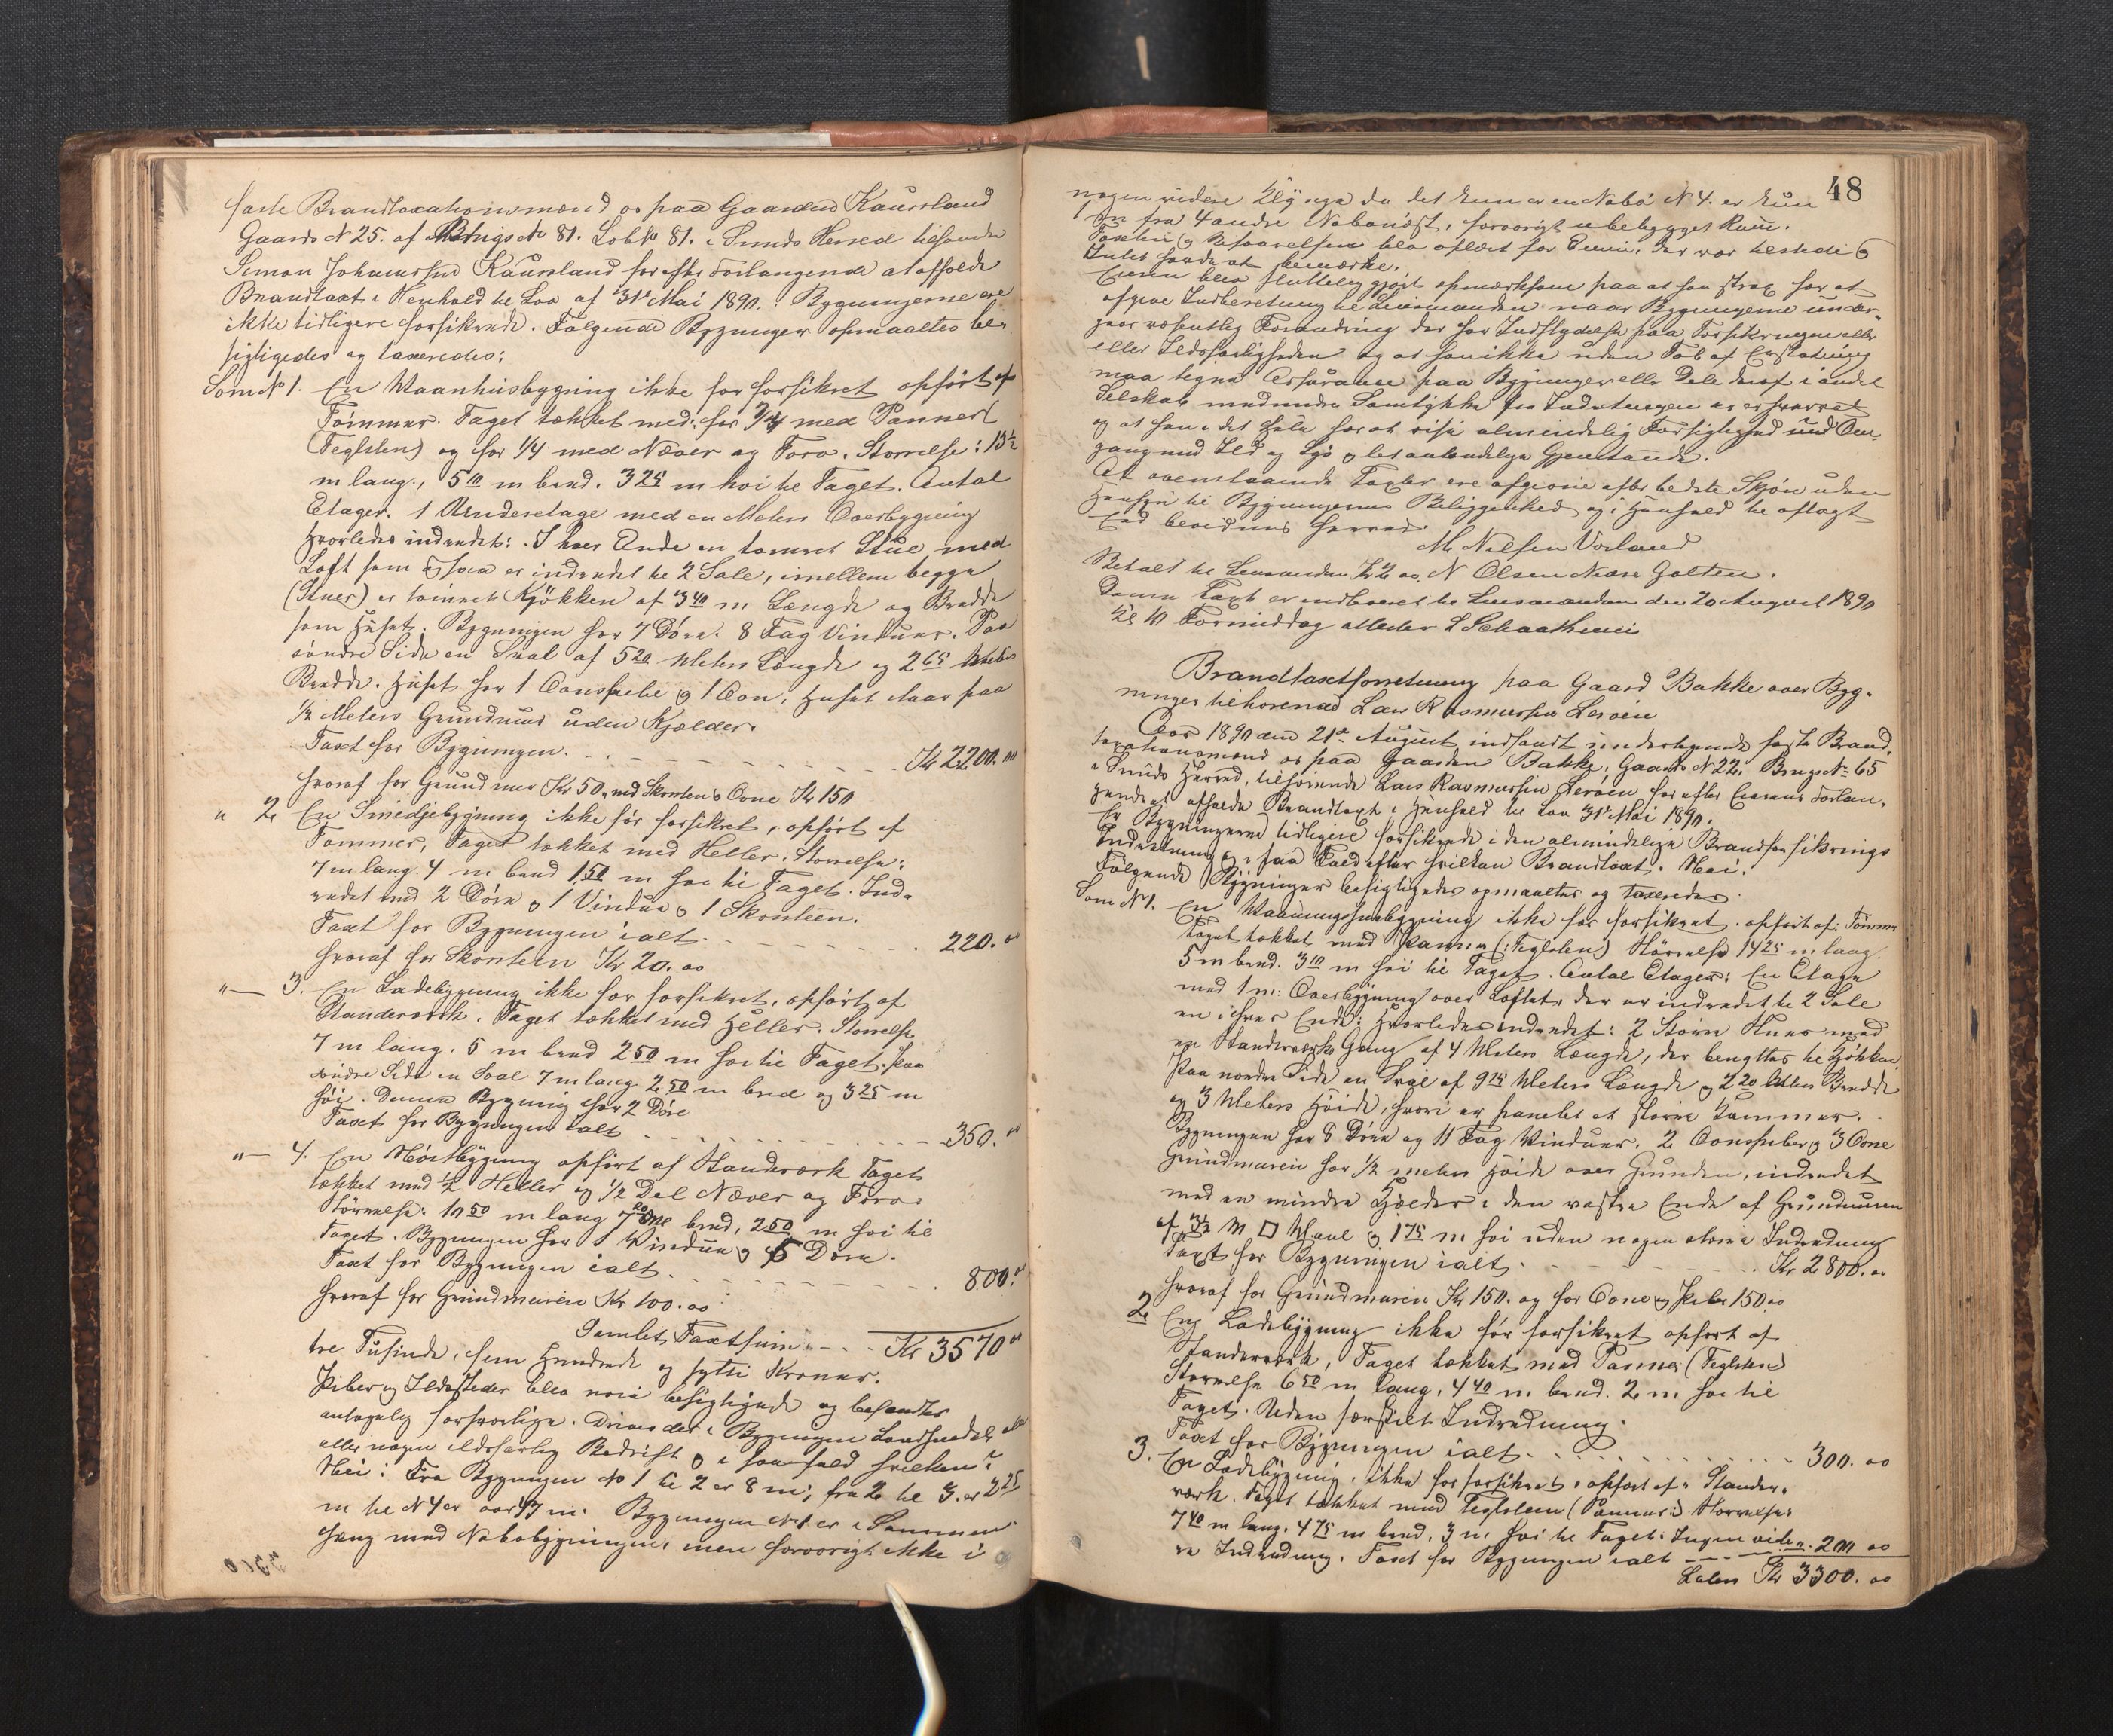 faste Brandtaxationsmænd os paa Gaarden Kaursland
Gaards N 25. af Brugs No 81. Løbe No 81. i Sunds Herred tilhørende
Simon Johannessen Kaursland for efter Forlangende at afholde
Brandtaxt i Henhold til Lov af 31te Mai 1890. Bygningerne ere
ikke tidligere forsikrede. Følgende Bygninger opmaaltes be-
sigtigedes og taxeredes:
Som No 1. En Vaanhusbygning ikke før forsikret opført af
Tømmer. Taget tækket med: for 3/4 med Panner
(Teglsten) og for 1/4 med Næver og Torv. Størrelse: 13½
m lang, 5 10 m bred. 3 25 m høi til Taget. Antal
Etager. 1 Underetage med en Meters Overbygning
Hvorledes indredet: I hver Ende en tømret Stue med
Loft som er indredet til 2 Sale, imellem begge
(Stuer) er tømret Kjøkken af 3 40 m Længde og Bredde
som Huset. Bygningen har 7 Døre. 8 Fag Vinduer. Paa
søndre Side en Sval af 5 20 Meters Længde og 2 65 Meters
Bredde. Huset har 1 Ovnspibe og 1 Ovn, Huset staar paa
½ Meters Grundmur uden Kjælder.
Taxt for Bygningen. Kr 2200. 00
hvoraf for Grundmur Kr 50, ved Skorsten & Ovne Kr 150
" 2 En Smedjebygning ikke før forsikret, opført af
Tømmer, Taget tækket med Heller. Størrelse:
7 m lang. 4 m bred 1,50 m høi til Taget. Ind-
redet med 2 Døre og 1 Vindue og 1 Skorsten.
Taxt for Bygningen ialt 220. 00
hvoraf for Skorsten Kr 20. 00
"— 3. En Ladebygning ikke før forsikret, opført af
Standerværk. Taget tækket med Heller. Størrelse
7 m lang. 5 m bred 2 50 m høi til Taget. Paa
søndre Side en Sval 7 m lang 2 50 m bred og 3 25 m
høi. Denne Bygning har 2 Døre
Taxt for Bygningen ialt 350. "
"— 4. En Nøstbygning opført af Standerværk Taget
tækket med ½ Heller og ½ Del Næver og Torv
Størrelse: 10 50 m lang 7 20 m bred, 2 50 m høi til
Taget. Bygningen har 1 Vindue og 5 Døre.
Taxt for Bygningen ialt 800. "
hvoraf for Grundmuren Kr 100. 00
Samlet Taxtsum Kr 3570 00
tre Tusinde, fem Hundrede og sytti Kroner.
Piber og Ildsteder blev nøie besigtigede og befandtes
antagelig forsvarlige. Drives der i Bygningen Landhandel eller
eller nogen ildsfarlig Bedrift og i saa fald hvilken?
Nei: Fra Bygningen No 1 til 2 er 8 m, fra 2 til 3. er 2 25
m til N 4 er over 47 m. Bygningen No 1 er i Sammen-
hæng med Nabobygningen, men forøvrigt ikke i
48
nogen videre Klynge da det kun er en Nabo N 4. er kun
fra 4 andre Nabonøst, forøvrigt ubebygget Rum.
Taxten og Besvarelsen blev oplæst for Eieren, der var tilstede &
Intet havde at bemærke.
Eieren blev slutteligt gjort opmærksom paa at han strax har at
afgive Indberetning til Lensmanden naar Bygningerne under-
gaar væsentlig Forandring der har Indflydelse paa Forsikringen eller
eller Ildsfarligheden og at han ikke uden Tab af Erstatning
maa tegne Assurance paa Bygninger eller Dele deraf i andet
Selskab medmindre Samtykke fra Indretningen er erhvervet
og at han i det Hele har at vise almindelig Forsigtighed ved Om-
gang med Ild og Lys og let antændelige Gjenstande.
At ovenstaaende Taxter ere afgivne efter bedste Skjøn uden
Hensyn til Bygningernes Beliggenhed og i Henhold til aflagt
Ed bevidnes herved.
M. Nilsen Vorland
Betalt til Lensmanden Kr 2 00. N Olsen Nedre Golten.
Denne Taxt er indleveret til Lensmanden den 20 August 1890
Kl 10 Formiddag attester L Schaathuun
Brandtaxtforretning paa Gaard Bakke over Byg-
ninger tilhørende Lars Rasmussen Lerøen
Aar 1890 den 21de August indfandt undertegnede faste Brand-
taxationsmænd os paa Gaarden Bakke, Gaards N 22, Brugs No 65
i Sunds Herred, tilhørende Lars Rasmussen Lerøen for efter Eierens Forlan-
gende at afholde Brandtaxt i Henhold til Lov 31te Mai 1890.
Er Bygningerne tidligere forsikrede i den almindelige Brandforsikrings
Indretning og i saa Fald efter hvilken Brandtaxt. Nei.
Følgende Bygninger besigtigedes opmaaltes og taxeredes.
Som N 1. En Vaaningshusbygning ikke før forsikret. opført af: Tømmer
Taget tækket med Panner (: Teglsten) Størrelse 14 25 m lang.
5 m bred. 3 10 m høi til Taget. Antal Etager: En Etage
med 1 m: Overbygning over Loftet, der er indredet til 2 Sale
en i hver Ende: Hvorledes indredet: 2 Større Stuer med
en Standerværks Gang af 4 Meters Længde, der benyttes til Kjøkken.
Paa nordre Side en Sval af 9 15 Meters Længde og 2 20 Meters Bredde
og 3 Meters Høide, hvori er panelet et større Kammer.
Bygningen har 8 Døre og 11 Fag Vinduer. 2 Ovnspiber og 3 Ovne
Grundmuren har ½ meters Høide over Grunden, indredet
med en mindre Kjælder i den vestre Ende af Grundmuren
af 3½ M □ Maal og 1 75 m høi uden nogen større Indredning
Taxt for Bygningen ialt. Kr 2800. 00
hvoraf for Grundmuren Kr 150. og for Ovne og Piber 150.00
2 En Ladebygning ikke før forsikret opført af
Standerværk, Taget tækket med Panner (Teglsten)
Størrelse 6 50 m lang, 4 40 m bred. 2 m høi til
Taget. Uden særskilt Indredning.
Taxt for Bygningen ialt 300. 00
3. En Ladebygning. ikke før forsikret, opført af Stander-
værk. Taget tækket med Teglsten (Panner:) Størrelse:
7 40 m lang. 4 75 m bred, 3 m høi til Taget. Ingen vide-
re Indredning. Taxt for Bygningen ialt 200 00
Lates Kr 3300. 00